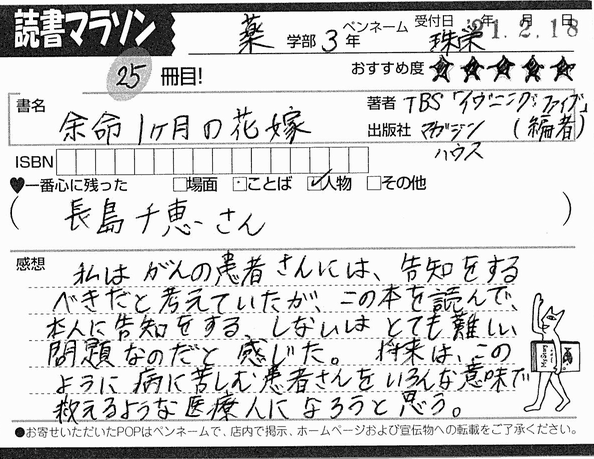 読書マラソン
薬 学部 3年
ペンネーム 珠栄
受付日 21.2.18 年 月 日
25 冊目!
おすすめ度 ★★★★★
書名 余命1ヶ月の花嫁
著者 TBS「イヴニング・ファイブ」(編者)
出版社 マガジンハウス
ISBN
♥一番心に残った □場面 □ことば ☑人物 □その他
(長島千恵さん)
感想
私はがんの患者さんには、告知をする
べきだと考えていたが、この本を読んで、
本人に告知をする、しないはとても難しい
問題なのだと感じた。将来は、この
ように病に苦しむ患者さんをいろんな意味で
救えるような医療人になろうと思う。
●お寄せいただいたPOPはペンネームで、店内で掲示、ホームページおよび宣伝物への転載をご了承ください。